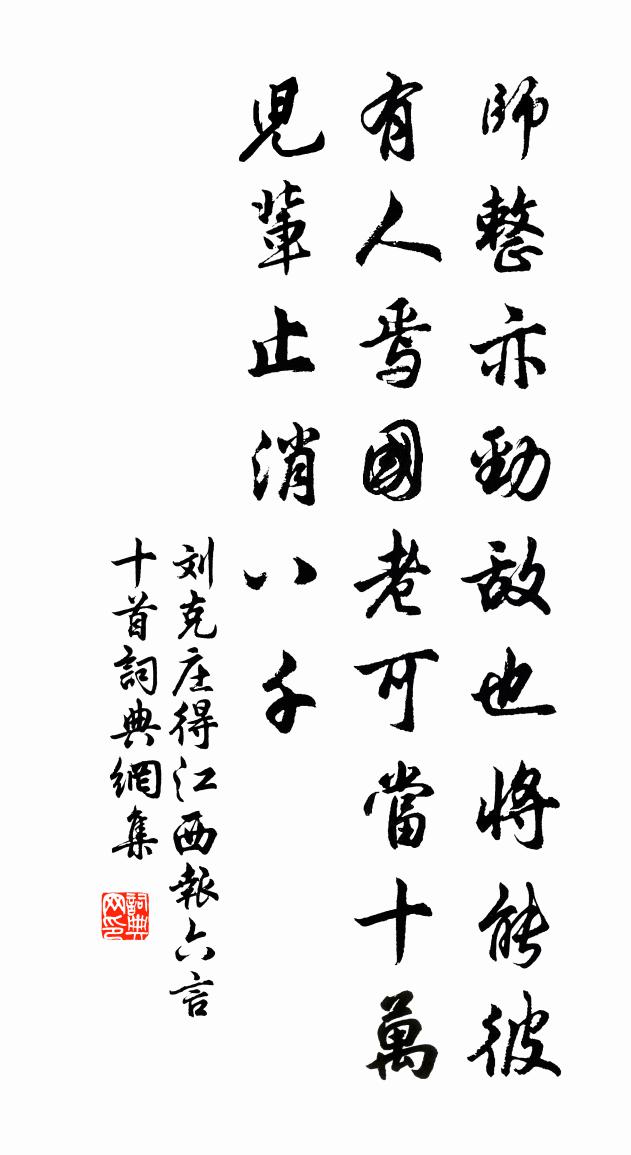 師整亦勁敵也將能彼
有人焉國老可當十萬
兒輩止消八千
刘克庄得江西報六言
十首詞典網集
詞典
网印